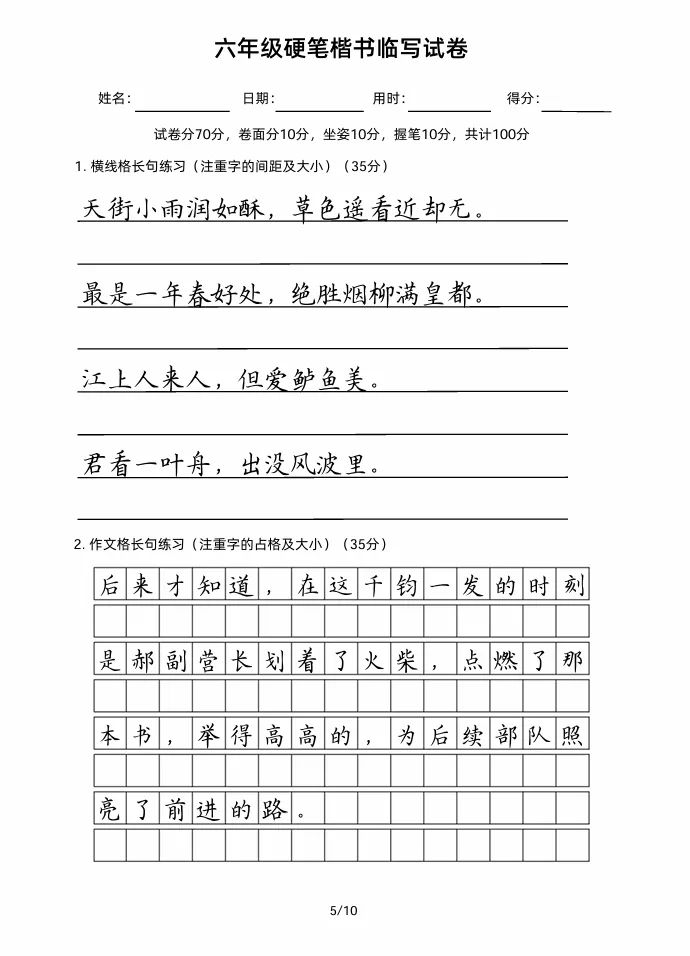 六年级硬笔楷书临写试卷
姓名：________ 日期：________ 用时：________ 得分：________
试卷分70分，卷面分10分，坐姿10分，握笔10分，共计100分
1. 横线格长句练习（注重字的间距及大小）（35分）
天街小雨润如酥，草色遥看近却无。
最是一年春好处，绝胜烟柳满皇都。
江上人来人，但爱鲈鱼美。
君看一叶舟，出没风波里。
2. 作文格长句练习（注重字的占格及大小）（35分）
后来才知道，在这千钧一发的时刻
是郝副营长划着了火柴，点燃了那
本书，举得高高的，为后续部队照
亮了前进的路。
5/10